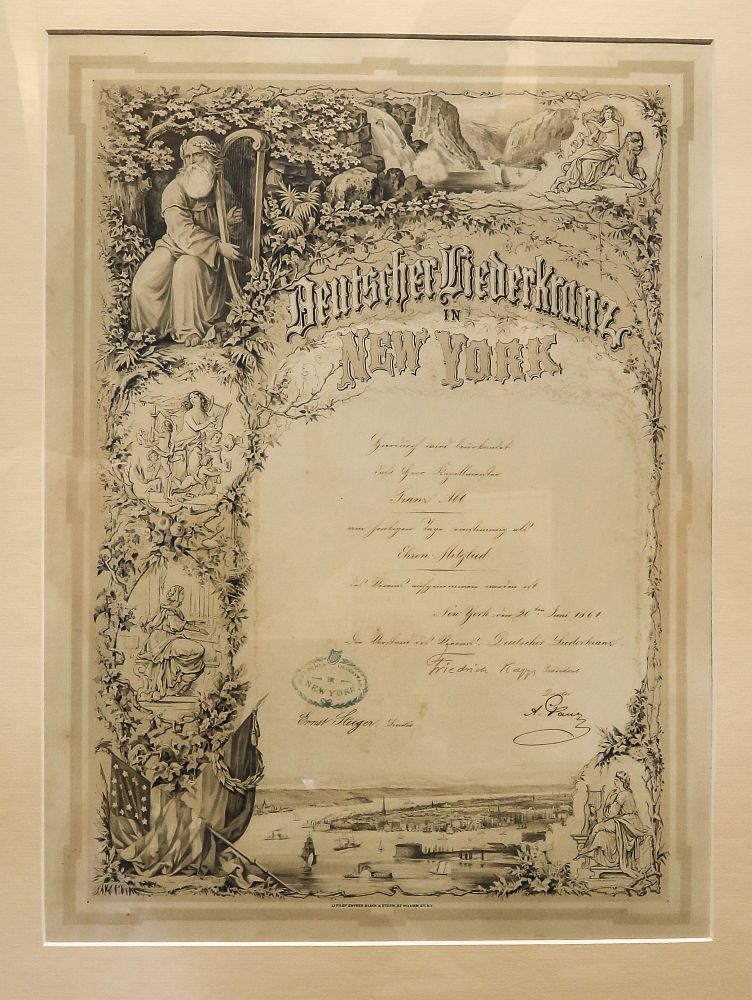 Deutscher Liederkranz
IN
NEW YORK
Hierdurch wird beurkundet
dass Herr Kapellmeister
Franz Abt
am heutigen Tage einstimmig als
Ehren-Mitglied
des Vereins aufgenommen worden ist
New York den 20ten Juni 1861
Der Vorstand des Vereins: Deutscher Liederkranz
Friedrich Kapp Präsident
NEW YORK
Ernst Steiger Secretär
A. Paur
LITH. OF SNYDER, BLACK & STURN, 92 WILLIAM ST. N.Y.